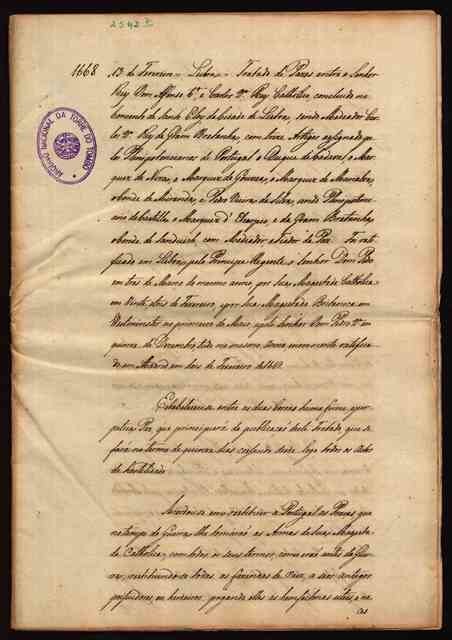 2542
1668
13 de Fevereiro = Lisboa = Tratado de Pazes entre o Senhor
Rey Dom Affonso 6º e Carlos 2º Rey Catholico, concluido no
Convento de Santo Eloy da Cidade de Lisboa, sendo Mediador Car-
los 2º Rey da Gram Bretanha, com treze Artigos assignado pe-
los Plenipotenciarios de Portugal o Duque de Cadaval, o Mar-
quez de Niza, o Marquez de Gouvea, o Marquez de Marialva,
o Conde de Miranda, e Pedro Vieira da Silva, e o Plenipotenci-
ario de Castella o Marquez d'
e da Gram Bretanha,
o Conde de Sandwich, com Mediador e Fiador da Paz. Foi rati-
ficado em Lisboa pelo Principe Regente o Senhor Dom Pedro
em tres de Março do mesmo anno, por Sua Magestade Catholica
em vinte tres de Fevereiro, e por Sua Magestade Britanica em
Westminster no primeiro de Maio, e pelo Senhor Dom Pedro 2º em
quinze de Dezembro
Estabeleceu-se entre as duas Coroas huma firme, e per-
petua Paz, que principiará da publicação deste Tratado, que se
fará no termo de quinze dias cessando desde logo todos os Actos
de hostilidade.
restituir a Portugal as Praças que
no tempo da Guerra lhe tomarão as Armas de Sua Magesta-
de Catholica, com todos os seus termos, como erão antes da Guer-
ra, restituindo-se todas as fazendas de raiz, a seus antigos
possuidores, ou herdeiros, pagando elles as bemfeitorias uteis, e ne-
ces
ARQUIVO NACIONAL DA TORRE DO TOMBO